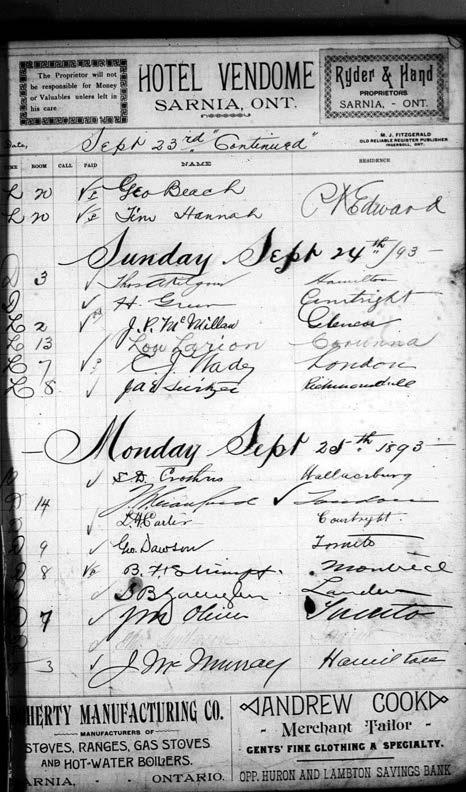 The Proprietor will not
be responsible for Money
or Valuables unless left in
his care.
HOTEL VENDOME
SARNIA, ONT.
Ryder & Hand
PROPRIETORS
SARNIA, - ONT.
Date, Sept 23rd "Continued"
M. J. FITZGERALD
OLD RELIABLE REGISTER PUBLISHER
INGERSOLL, ONT.
ROOM CALL PAID NAME RESIDENCE
L 20 Geo Beach
L 20 Jim Hannah Pt Edward
Sunday Sept 24th /93
3 Hamilton
H. Courtright
2 J. P. McMillan Glencoe
13 Lou Larion Corunna
7 E. J. Wadey London
8 Jas Richmondhill
Monday Sept 25th 1893
S. D. Crothers Wallaceburg
14 London
L. H. Carter Courtright
9 Geo. Dawson Toronto
8 B. F. Montreal
London
7 J M Oliver Toronto
3 J. McMurray Hamilton
HERTY MANUFACTURING CO.
MANUFACTURERS OF
STOVES, RANGES, GAS STOVES
AND HOT-WATER BOILERS.
ARNIA, - - ONTARIO.
ANDREW COOK
- Merchant Tailor -
GENTS' FINE CLOTHING A SPECIALTY.
OPP. HURON AND LAMBTON SAVINGS BANK